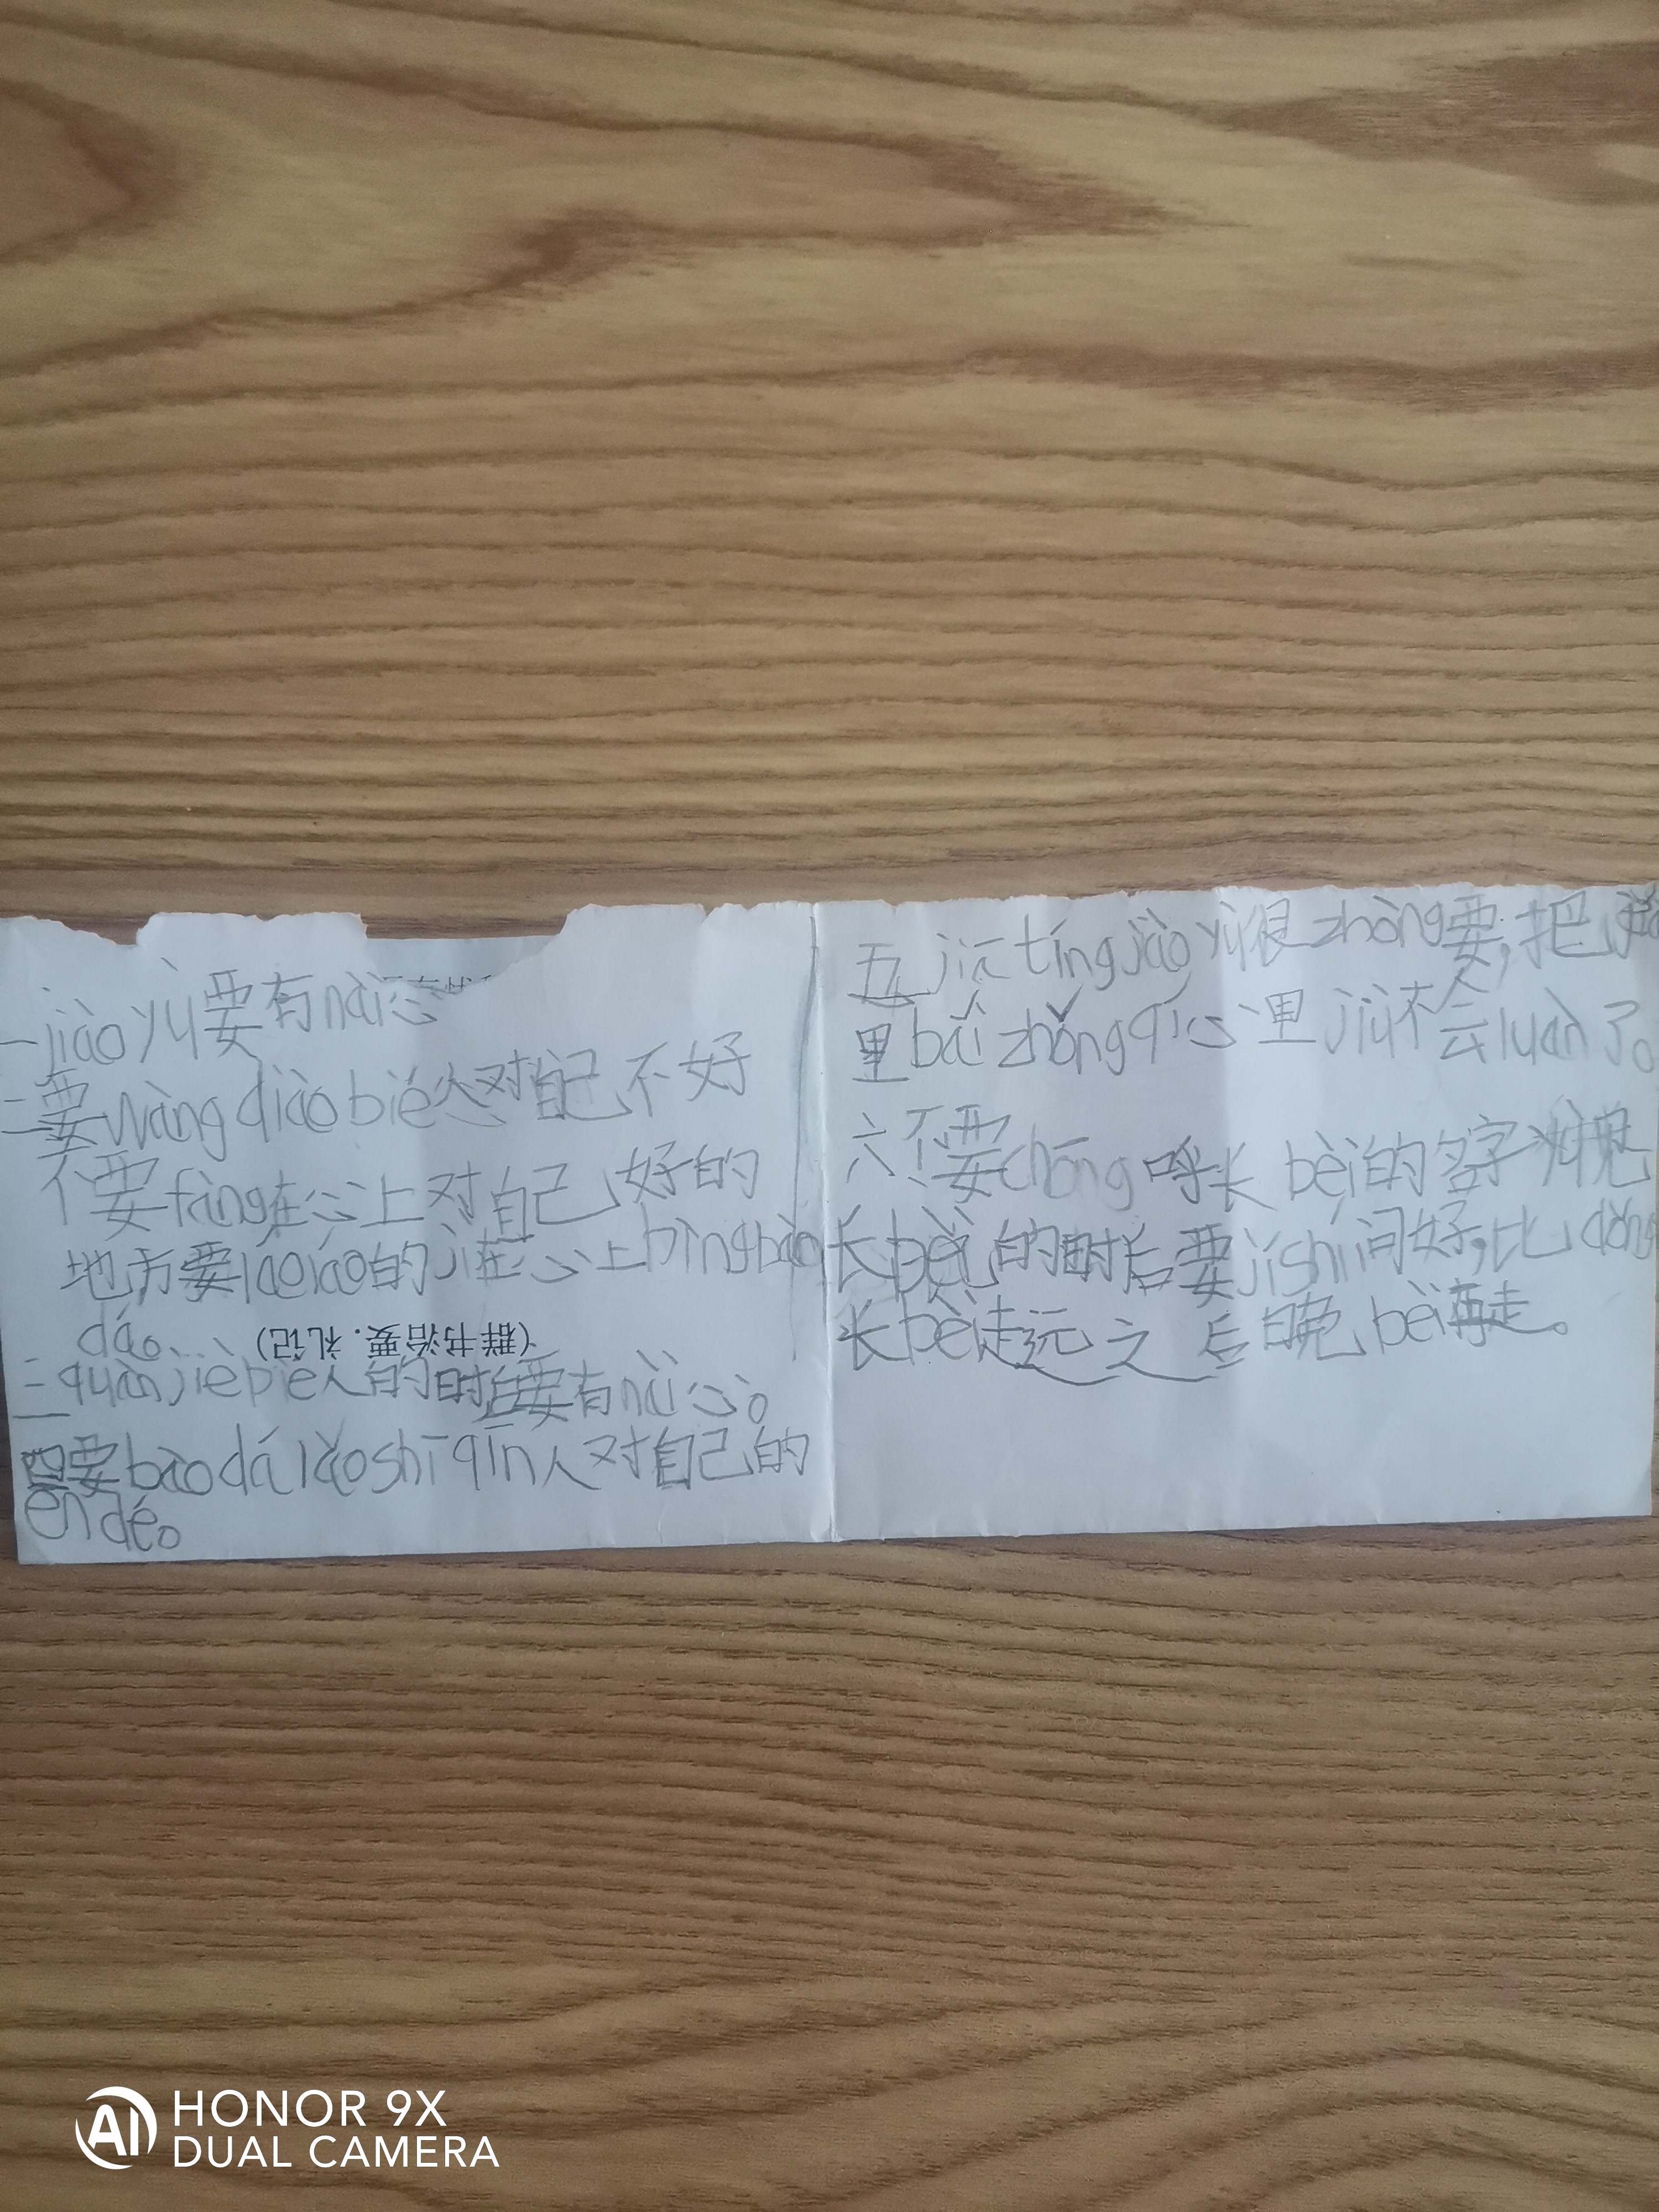 一jiào yù要有nài心
二要wàng diào bié人对自己不好
不要fàng在心上对自己好的
地方要láo láo的jì在心上bìng bào
dá。
(群书治要·礼记)
三quàn jiè bié人的时后要有nài心。
四要bào dá lǎo shī qīn人对自己的
ēn dé。
五jiā tíng jiào yù很zhòng要,把
里bǎi zhǒng qí心里jiù不会luàn了。
六不要chēng呼长bèi的名字 见
长bèi的时后要jí shí问好,比
长bèi走远之后 bèi再走。
HONOR 9X
DUAL CAMERA